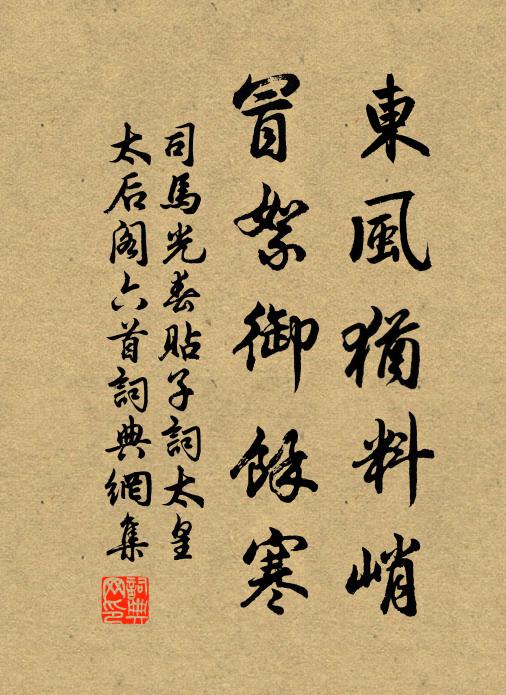 東風猶料峭
冒絮御餘寒
司馬光春貼子詞太皇
太后阁六首詞典網集
詞典网印